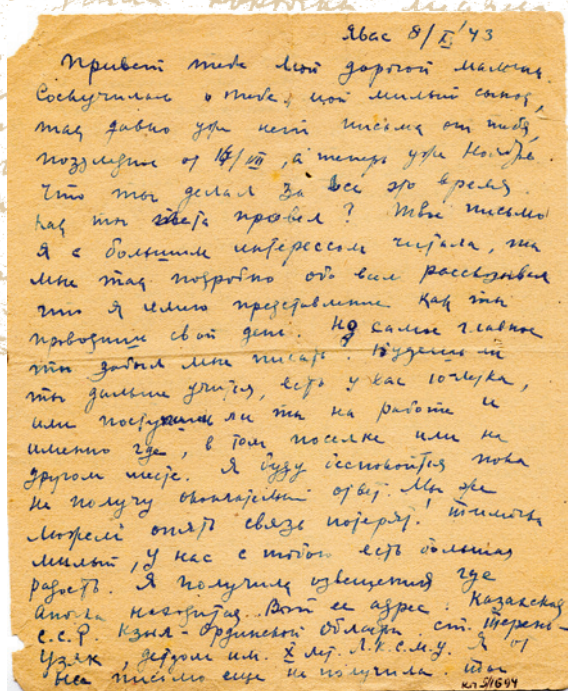 Явас 8/XI 43
Привет тебе мой дорогой мальчик.
Соскучилась о тебе, мой милый сынок,
так давно уже нет письма от тебя,
последнее от /VII, а теперь уже Ноябрь.
Что ты делал за все это время.
Как ты лета провел? Твое письмо
я с большим интерессом читала, ты
мне так подробно обо всем рассказывал
что я имею представление как ты
проводишь свой день. Но самое главное
ты забыл мне писать. Будешь ли
ты дальше учится, есть у вас 10-летка,
или поступишь ли ты на работе и
именно где, в том поселке или на
другом месте. Я буду беспокоится пока
не получу окончательный ответ. Мы же
можем опять связь потерят!
милый, у нас с тобою есть большая
радость. Я получила извещения где
находится. Вот ее адрес: Казахская
С.С.Р. Кзыл-Ординской области ст. Терень-
Узяк, детдом им. X лет. Л.К.С.М.У. Я от
нее письмо еще не получила. Ты
кп 51694